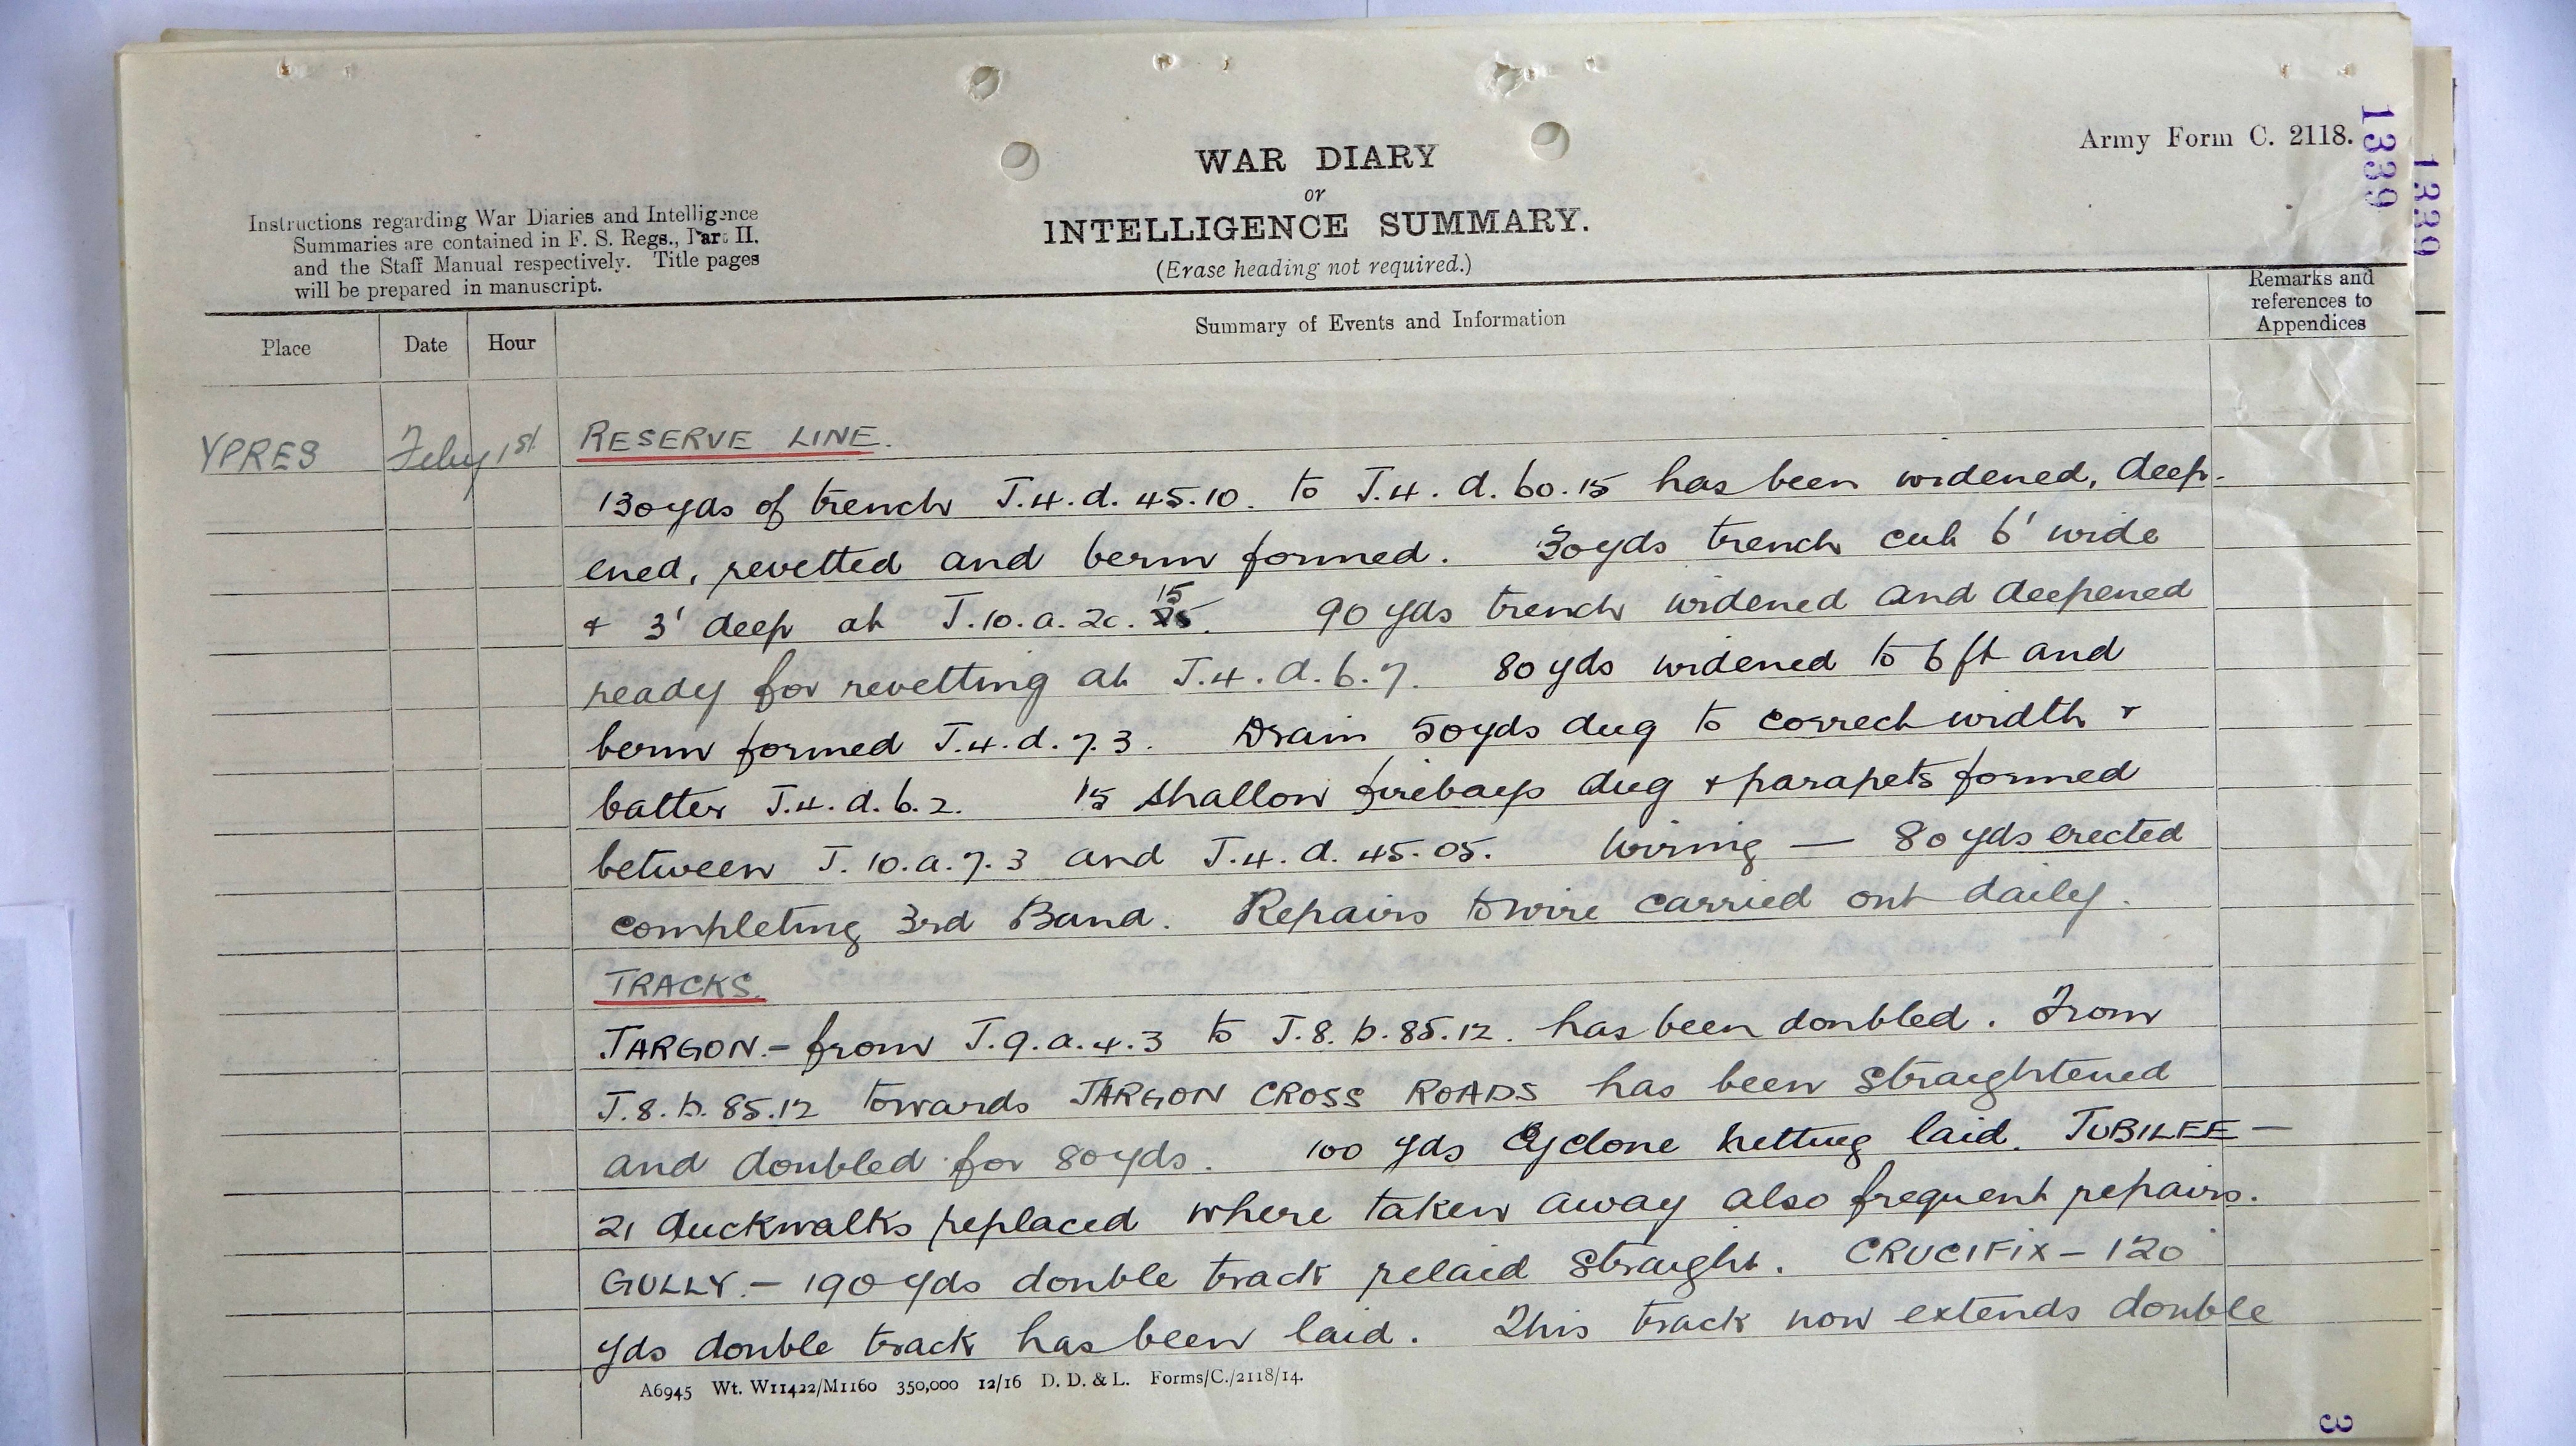 Army Form C. 2118.
1339
1339
WAR DIARY
or
INTELLIGENCE SUMMARY.
(Erase heading not required.)
Instructions regarding War Diaries and Intelligence
Summaries are contained in F. S. Regs., Part II.
and the Staff Manual respectively. Title pages
will be prepared in manuscript.
Place
Date
Hour
Summary of Events and Information
Remarks and
references to
Appendices
YPRES Feby 1st RESERVE LINE.
130yds of trench J.4.d.45.10. to J.4.d.60.15 has been widened, deep-
ened, revetted and berm formed. 30yds trench cut 6' wide
& 3' deep at J.10.a.20.15. 90 yds trench widened and deepened
ready for revetting at J.4.d.6.7. 80 yds widened to 6 ft and
berm formed J.4.d.7.3. Drain 50yds dug to correct width &
batter J.4.d.6.2. 15 shallow firebays dug & parapets formed
between J.10.a.7.3 and J.4.d.45.05. Wiring — 80 yds erected
completing 3rd Band. Repairs to wire carried out daily.
TRACKS.
JARGON.- from J.9.a.4.3 to J.8.b.85.12. has been doubled. From
J.8.b.85.12 towards JARGON CROSS ROADS has been straightened
and doubled for 80yds. 100 yds Cyclone netting laid. JUBILEE —
21 duckwalks replaced where taken away also frequent repairs.
GULLY.- 190 yds double track relaid straight. CRUCIFIX - 120
yds double track has been laid. This track now extends double
A6945 Wt. W11422/M1160 350,000 12/16 D. D. & L. Forms/C./2118/14.
3